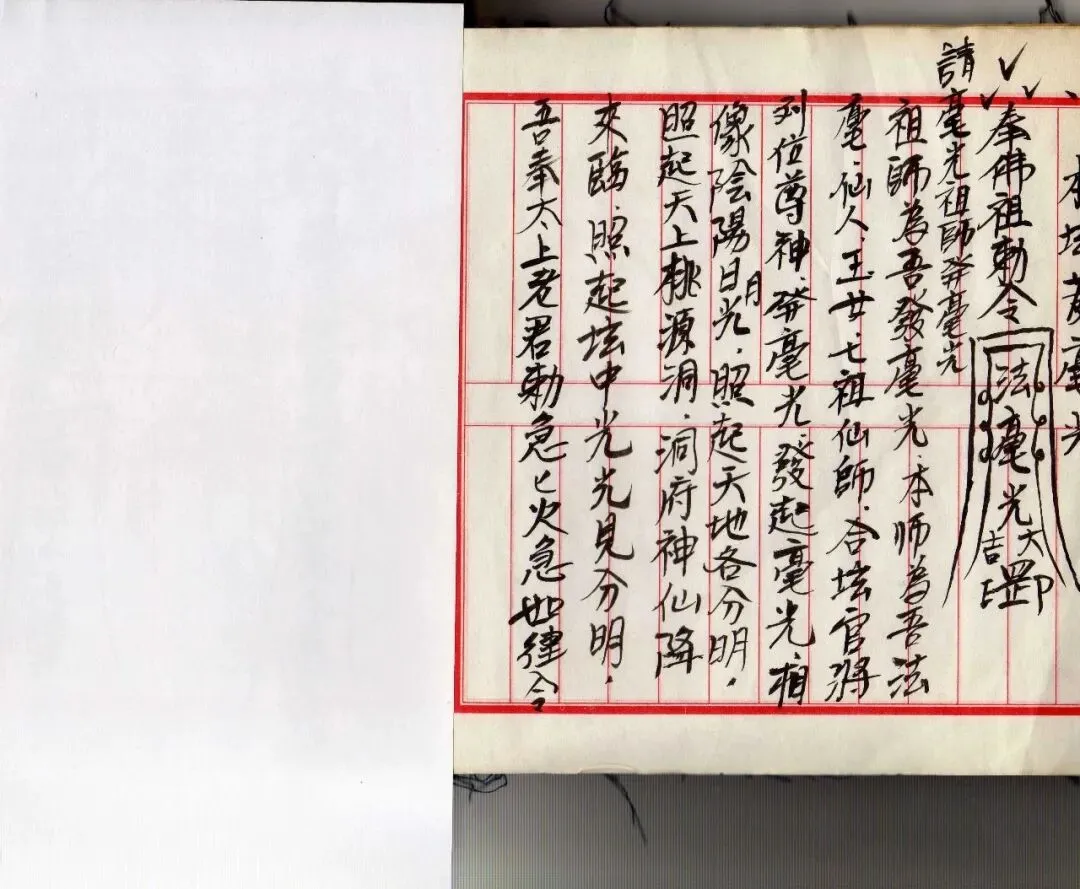 本壇發毫光
奉佛祖勅令 法毫光 大吉 罡印
請毫光祖師發毫光
祖師為吾發毫光、本師為吾法
毫、仙人、玉女、七祖仙師、合坛官將
列位尊神、發毫光、發起毫光、相
像陰陽日月光、照起天地各分明、
照起天上桃源洞、洞府神仙降
來臨、照起坛中光光見分明、
吾奉太上老君勅急匕火急如律令